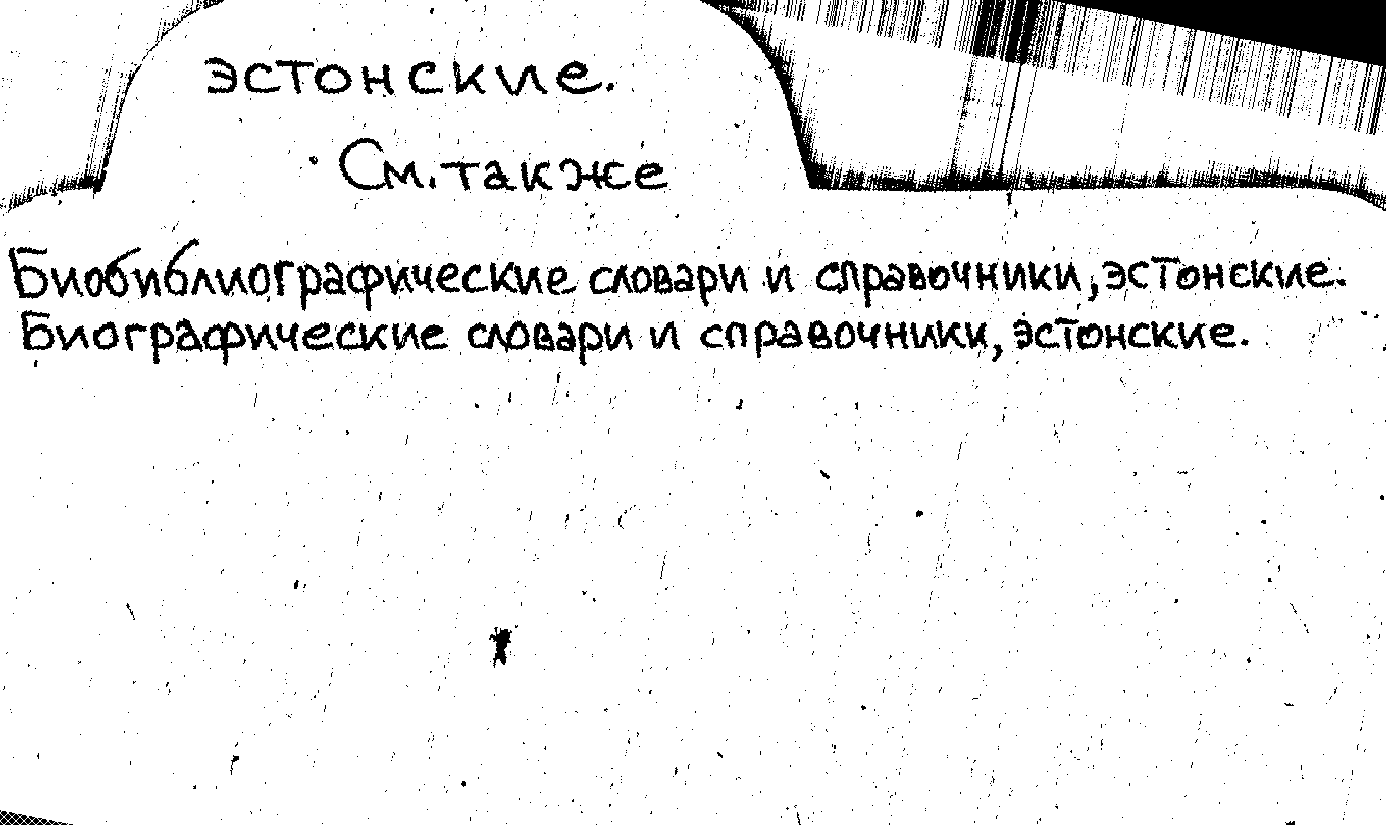 эстонские.
См. также
Биобиблиографические словари и справочники, эстонские.
Биографические словари и справочники, эстонские.